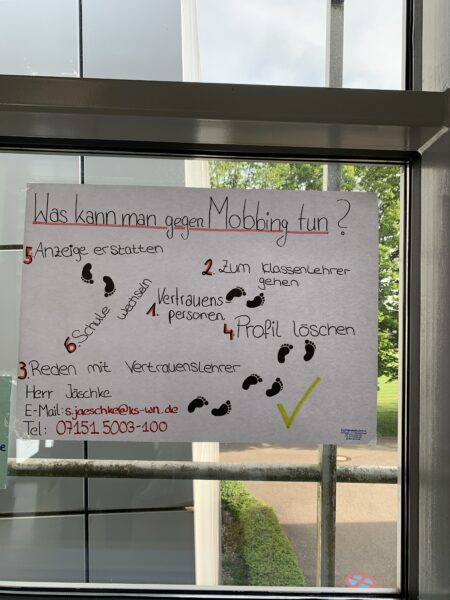 Was kann man gegen Mobbing tun?
5 Anzeige erstatten
2. Zum Klassenlehrer
gehen
6. Schule wechseln
1. Vertrauens-
personen
4. Profil löschen
3 Reden mit Vertrauenslehrer
Herr Jäschke
E-Mail: s.jaeschke@ks-wn.de
Tel: 07151 5003-100